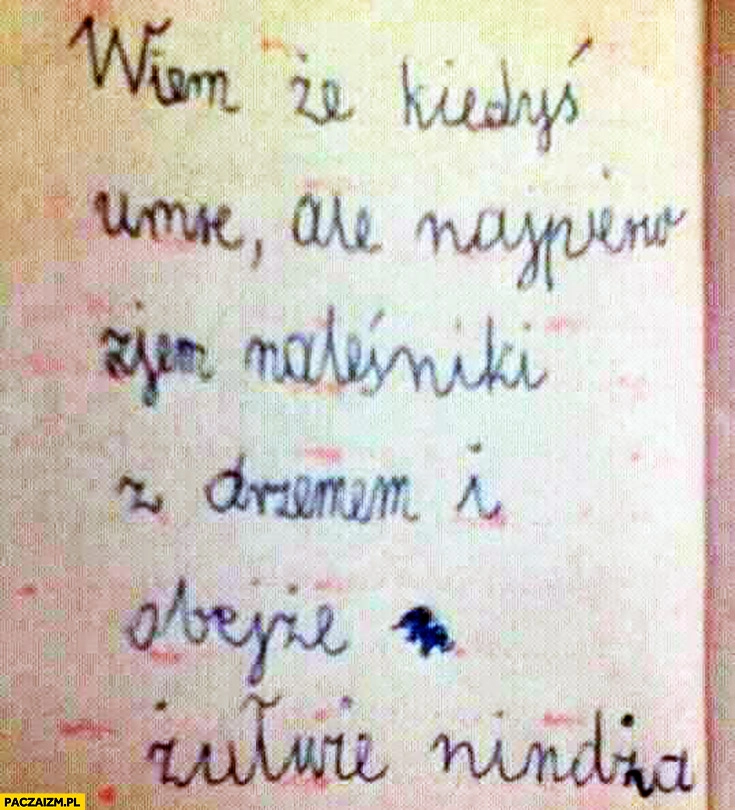 Wiem że kiedyś
umre, ale najpierw
zjem naleśniki
z drzemem i
obejże
żułwie nindża
PACZAIZM.PL